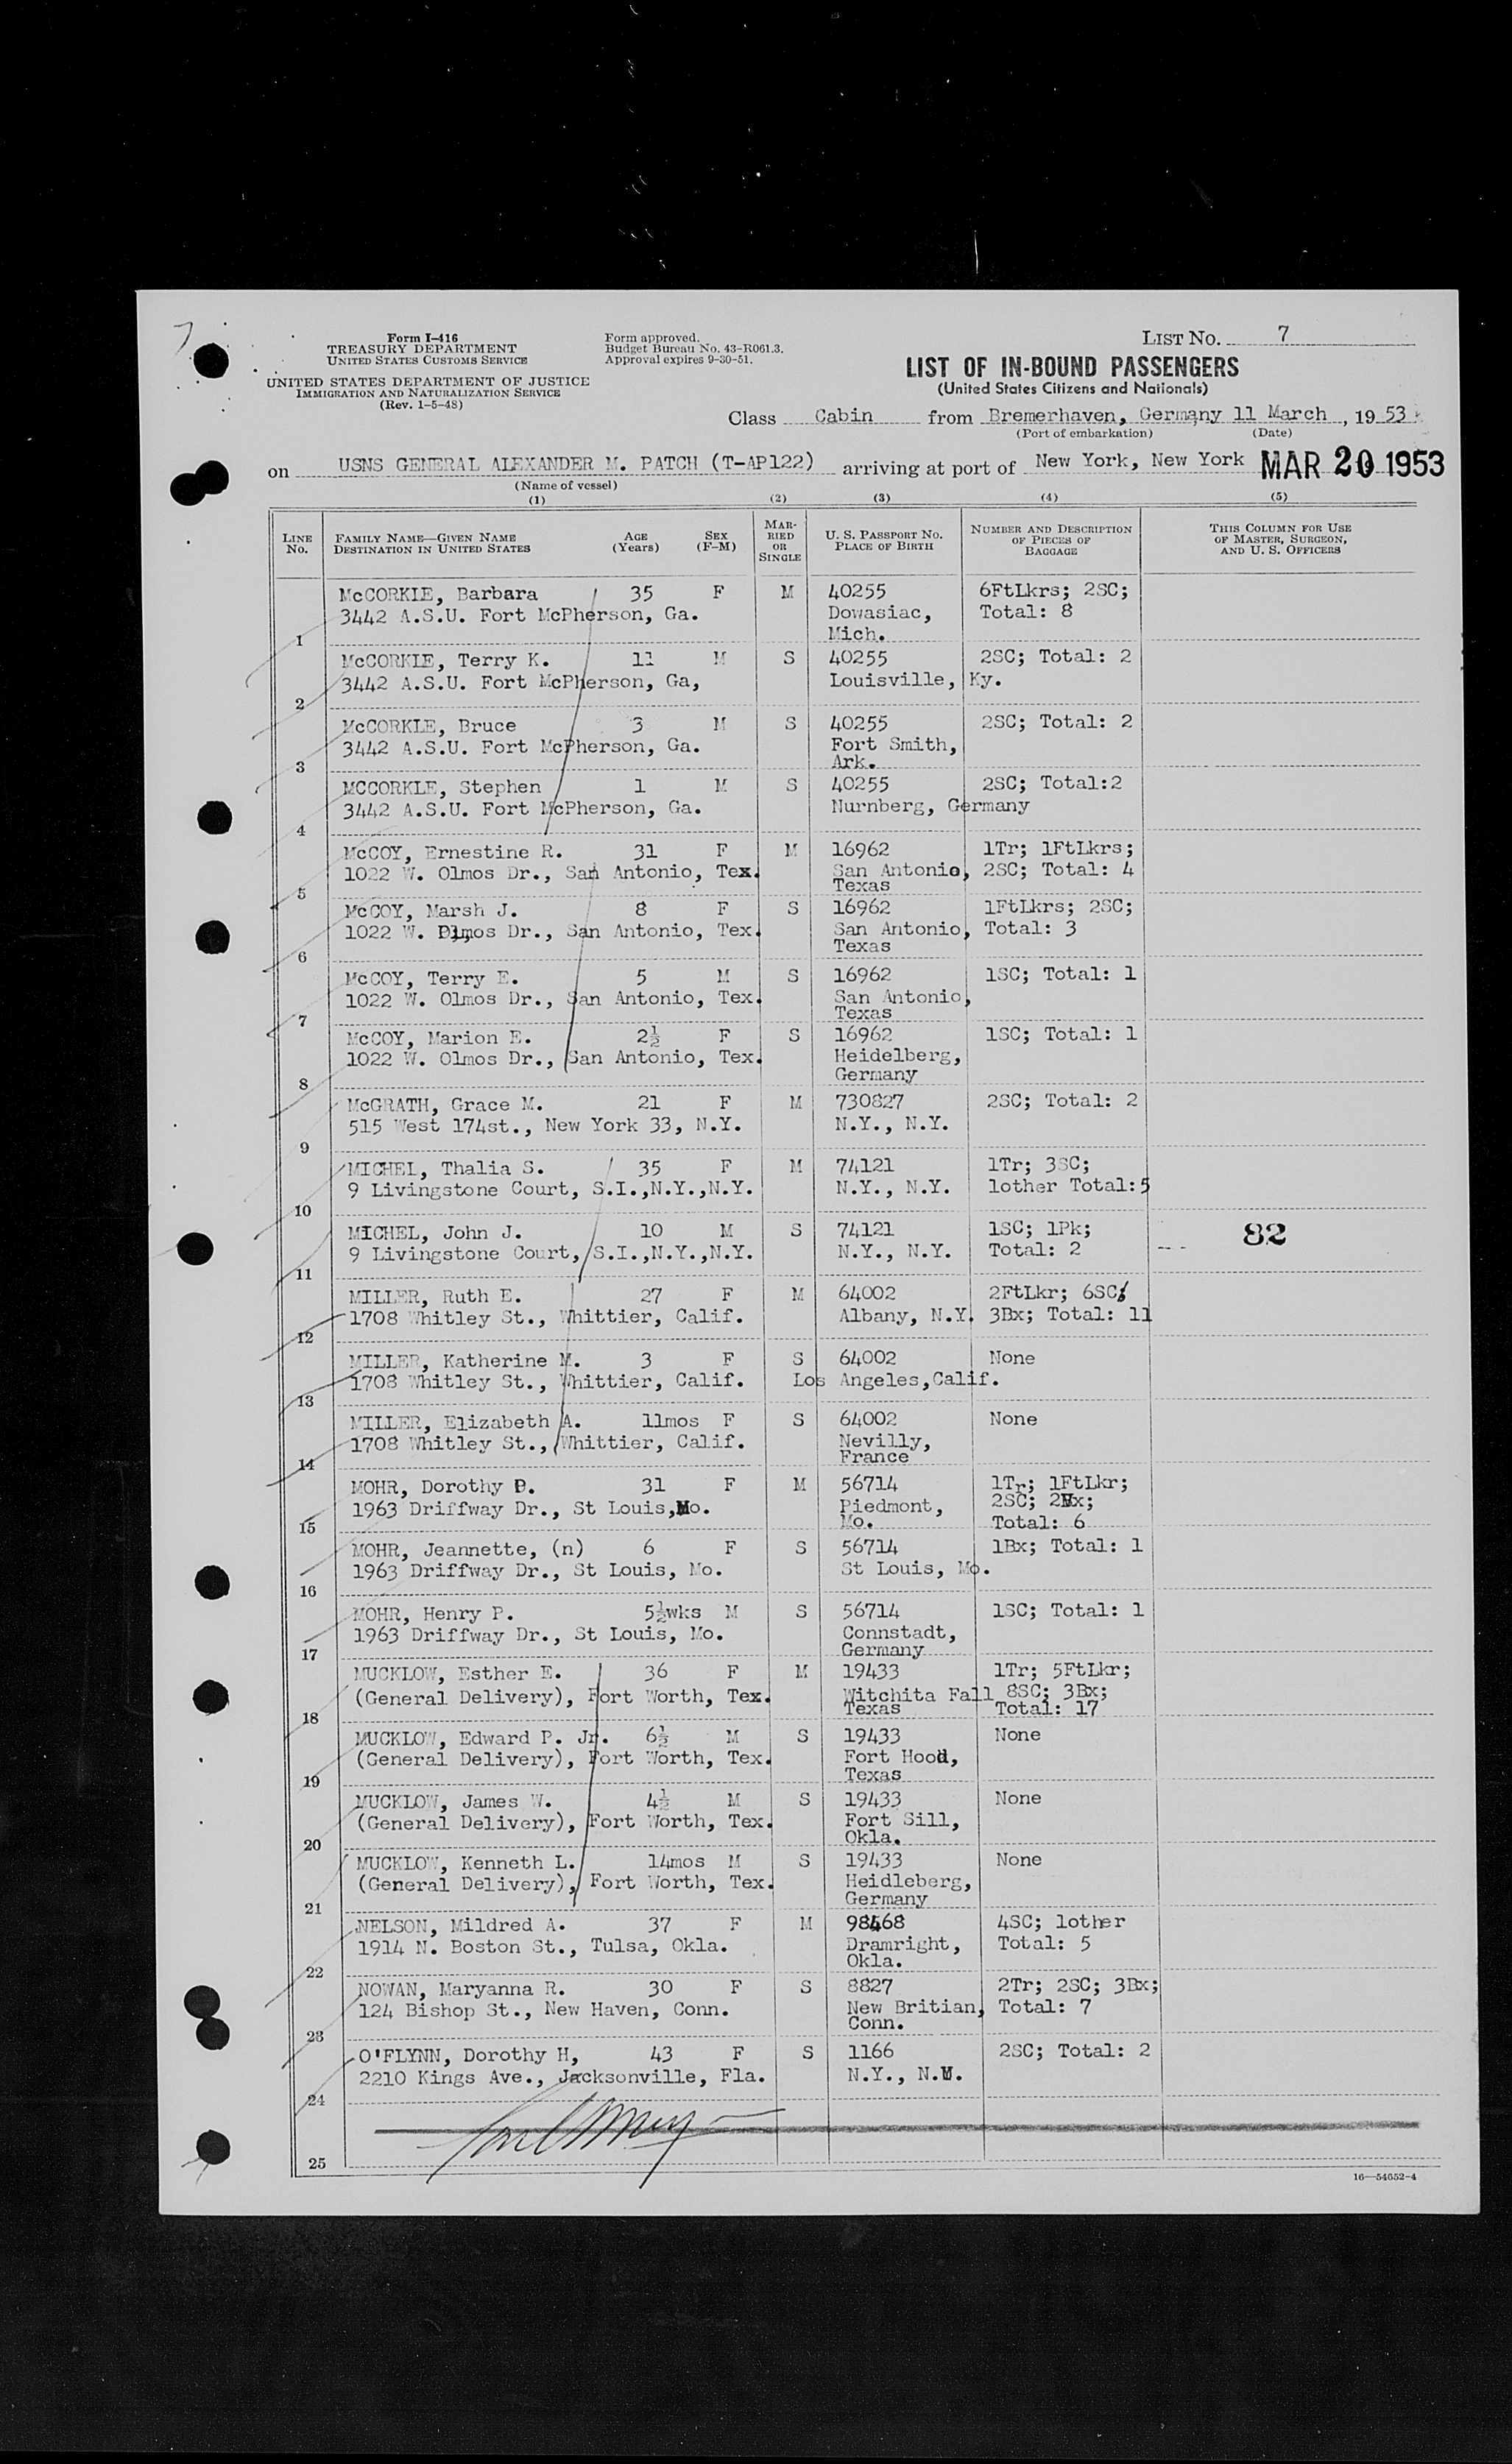 Form I-416
TREASURY DEPARTMENT
UNITED STATES CUSTOMS SERVICE
UNITED STATES DEPARTMENT OF JUSTICE
IMMIGRATION AND NATURALIZATION SERVICE
(Rev. 1-5-48)
Form approved.
Budget Bureau No. 43-R061.3.
Approval expires 9-30-51.
LIST No. 7
LIST OF IN-BOUND PASSENGERS
(United States Citizens and Nationals)
Class Cabin from Bremerhaven, Germany 11 March, 1953
(Port of embarkation) (Date)
on USNS GENERAL ALEXANDER M. PATCH (T-AP122) arriving at port of New York, New York MAR 20 1953
(Name of vessel)
(1) (2) (3) (4) (5)
LINE No. FAMILY NAME—GIVEN NAME DESTINATION IN UNITED STATES AGE (Years) SEX (F-M) MARRIED OR SINGLE U. S. PASSPORT NO. PLACE OF BIRTH NUMBER AND DESCRIPTION OF PIECES OF BAGGAGE THIS COLUMN FOR USE OF MASTER, SURGEON, AND U. S. OFFICERS
McCORKIE, Barbara 35 F M 40255 6FtLkrs; 2SC;
3442 A.S.U. Fort McPherson, Ga. Dowasiac, Total: 8
1 Mich.
McCORKIE, Terry K. 11 M S 40255 2SC; Total: 2
3442 A.S.U. Fort McPherson, Ga, Louisville, Ky.
2
McCORKLE, Bruce 3 M S 40255 2SC; Total: 2
3442 A.S.U. Fort McPherson, Ga. Fort Smith,
3 Ark.
MCCORKLE, Stephen 1 M S 40255 2SC; Total:2
3442 A.S.U. Fort McPherson, Ga. Nurnberg, Germany
4
McCOY, Ernestine R. 31 F M 16962 1Tr; 1FtLkrs;
1022 W. Olmos Dr., San Antonio, Tex. San Antonio, 2SC; Total: 4
5 Texas
McCOY, Marsh J. 8 F S 16962 1FtLkrs; 2SC;
1022 W. Olmos Dr., San Antonio, Tex. San Antonio, Total: 3
6 Texas
McCOY, Terry E. 5 M S 16962 1SC; Total: 1
1022 W. Olmos Dr., San Antonio, Tex. San Antonio,
7 Texas
McCOY, Marion E. 2½ F S 16962 1SC; Total: 1
1022 W. Olmos Dr., San Antonio, Tex. Heidelberg,
8 Germany
McGRATH, Grace M. 21 F M 730827 2SC; Total: 2
515 West 174st., New York 33, N.Y. N.Y., N.Y.
9
MICHEL, Thalia S. 35 F M 74121 1Tr; 3SC;
9 Livingstone Court, S.I.,N.Y.,N.Y. N.Y., N.Y. 1other Total:5
10
MICHEL, John J. 10 M S 74121 1SC; 1Pk; 82
9 Livingstone Court, S.I.,N.Y.,N.Y. N.Y., N.Y. Total: 2
11
MILLER, Ruth E. 27 F M 64002 2FtLkr; 6SC;
1708 Whitley St., Whittier, Calif. Albany, N.Y. 3Bx; Total: 11
12
MILLER, Katherine M. 3 F S 64002 None
1708 Whitley St., Whittier, Calif. Los Angeles,Calif.
13
MILLER, Elizabeth A. 11mos F S 64002 None
1708 Whitley St., Whittier, Calif. Nevilly,
14 France
MOHR, Dorothy P. 31 F M 56714 1Tr; 1FtLkr;
1963 Driffway Dr., St Louis,Mo. Piedmont, 2SC; 2Bx;
15 Mo. Total: 6
MOHR, Jeannette, (n) 6 F S 56714 1Bx; Total: 1
1963 Driffway Dr., St Louis, Mo. St Louis, Mo.
16
MOHR, Henry P. 5½wks M S 56714 1SC; Total: 1
1963 Driffway Dr., St Louis, Mo. Connstadt,
17 Germany
MUCKLOW, Esther E. 36 F M 19433 1Tr; 5FtLkr;
(General Delivery), Fort Worth, Tex. Witchita Fall 8SC; 3Bx;
18 Texas Total: 17
MUCKLOW, Edward P. Jr. 6½ M S 19433 None
(General Delivery), Fort Worth, Tex. Fort Hood,
19 Texas
MUCKLOW, James W. 4½ M S 19433 None
(General Delivery), Fort Worth, Tex. Fort Sill,
20 Okla.
MUCKLOW, Kenneth L. 14mos M S 19433 None
(General Delivery), Fort Worth, Tex. Heidleberg,
21 Germany
NELSON, Mildred A. 37 F M 98468 4SC; 1other
1914 N. Boston St., Tulsa, Okla. Dramright, Total: 5
22 Okla.
NOWAN, Maryanna R. 30 F S 8827 2Tr; 2SC; 3Bx;
124 Bishop St., New Haven, Conn. New Britian, Total: 7
23 Conn.
O'FLYNN, Dorothy H, 43 F S 1166 2SC; Total: 2
2210 Kings Ave., Jacksonville, Fla. N.Y., N.Y.
24
25
16—54652-4